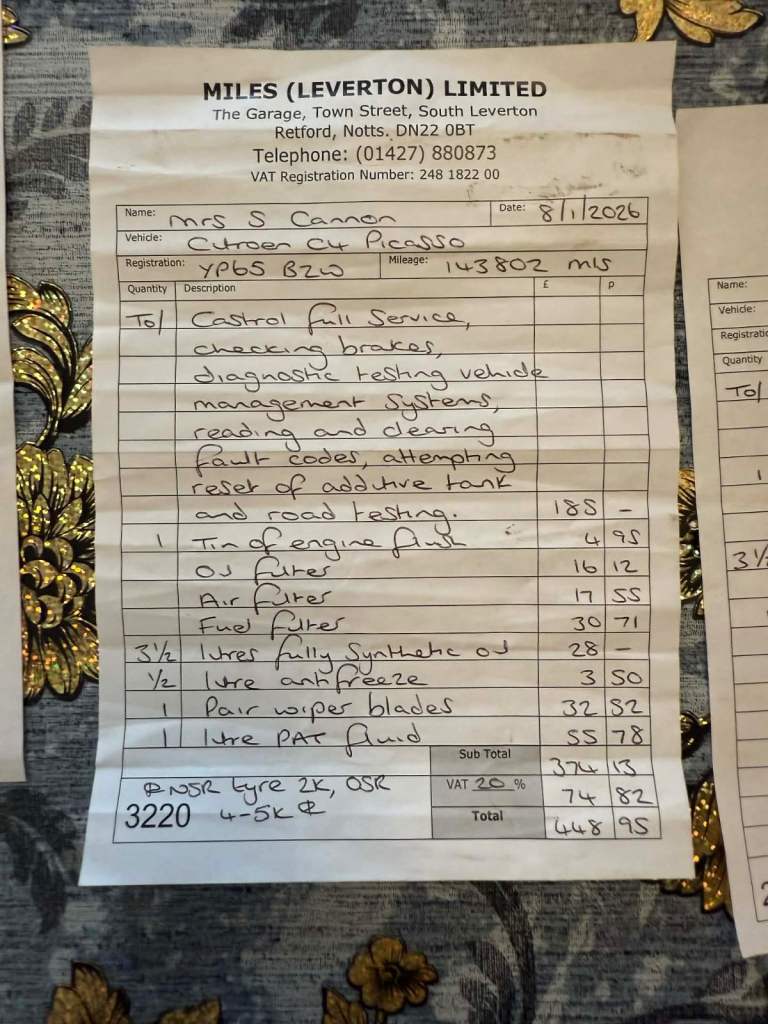 MILES (LEVERTON) LIMITED
The Garage, Town Street, South Leverton
Retford, Notts. DN22 0BT
Telephone: (01427) 880873
VAT Registration Number: 248 1822 00
Name: Mrs S Cannon Date: 8/1/2026
Vehicle: Citroen C4 Picasso
Registration: YP65 BZW Mileage: 143802 mls
Quantity Description £ p
To/ Castrol full Service,
checking brakes,
diagnostic testing vehicle
management Systems,
reading and clearing
fault codes, attempting
reset of additive tank
and road testing. 185 –
1 Tin of engine flush 4 95
Oil filter 16 12
Air filter 17 55
Fuel filter 30 71
3½ litres fully Synthetic oil 28 –
½ litre antifreeze 3 50
1 Pair wiper blades 32 52
1 litre PAT fluid 55 78
Sub Total 374 13
NSR tyre 2K, OSR VAT 20 % 74 82
3220 4-5K
Total 448 95
Name:
Vehicle:
Quantity
To/
1